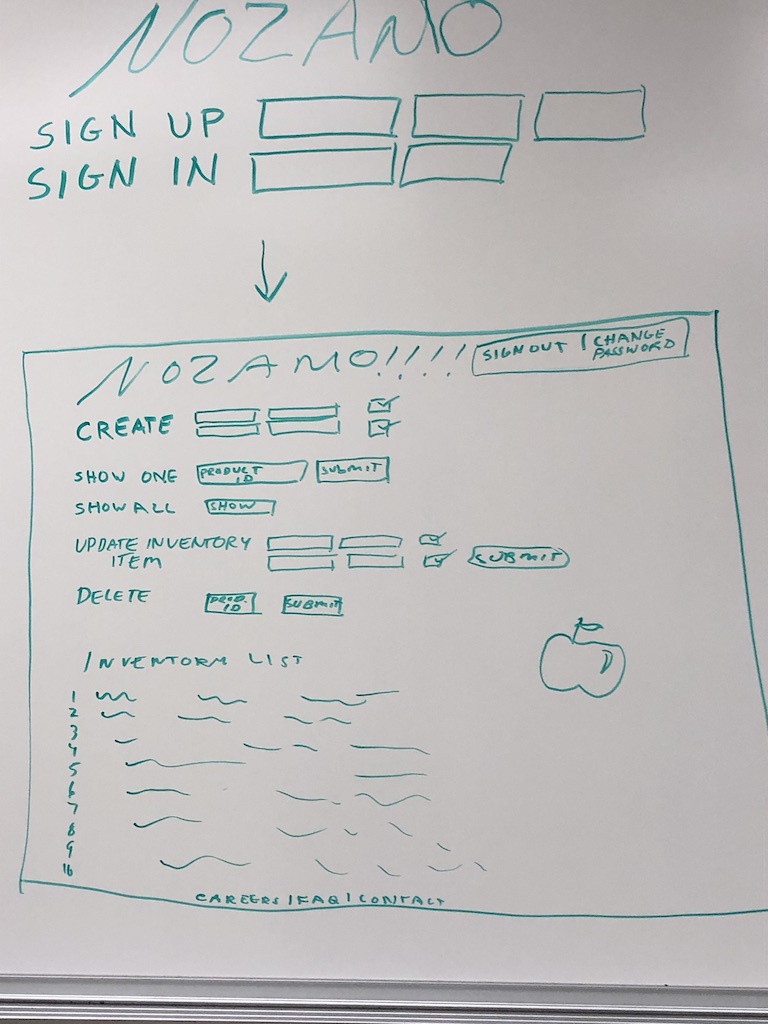 NOZAMO
SIGN UP
SIGN IN
NOZAMO!!!! SIGN OUT | CHANGE PASSWORD
CREATE
SHOW ONE PRODUCT ID SUBMIT
SHOW ALL SHOW
UPDATE INVENTORY ITEM SUBMIT
DELETE PROD. ID SUBMIT
INVENTORY LIST
1
2
3
4
5
6
7
8
9
10
CAREERS | FAQ | CONTACT